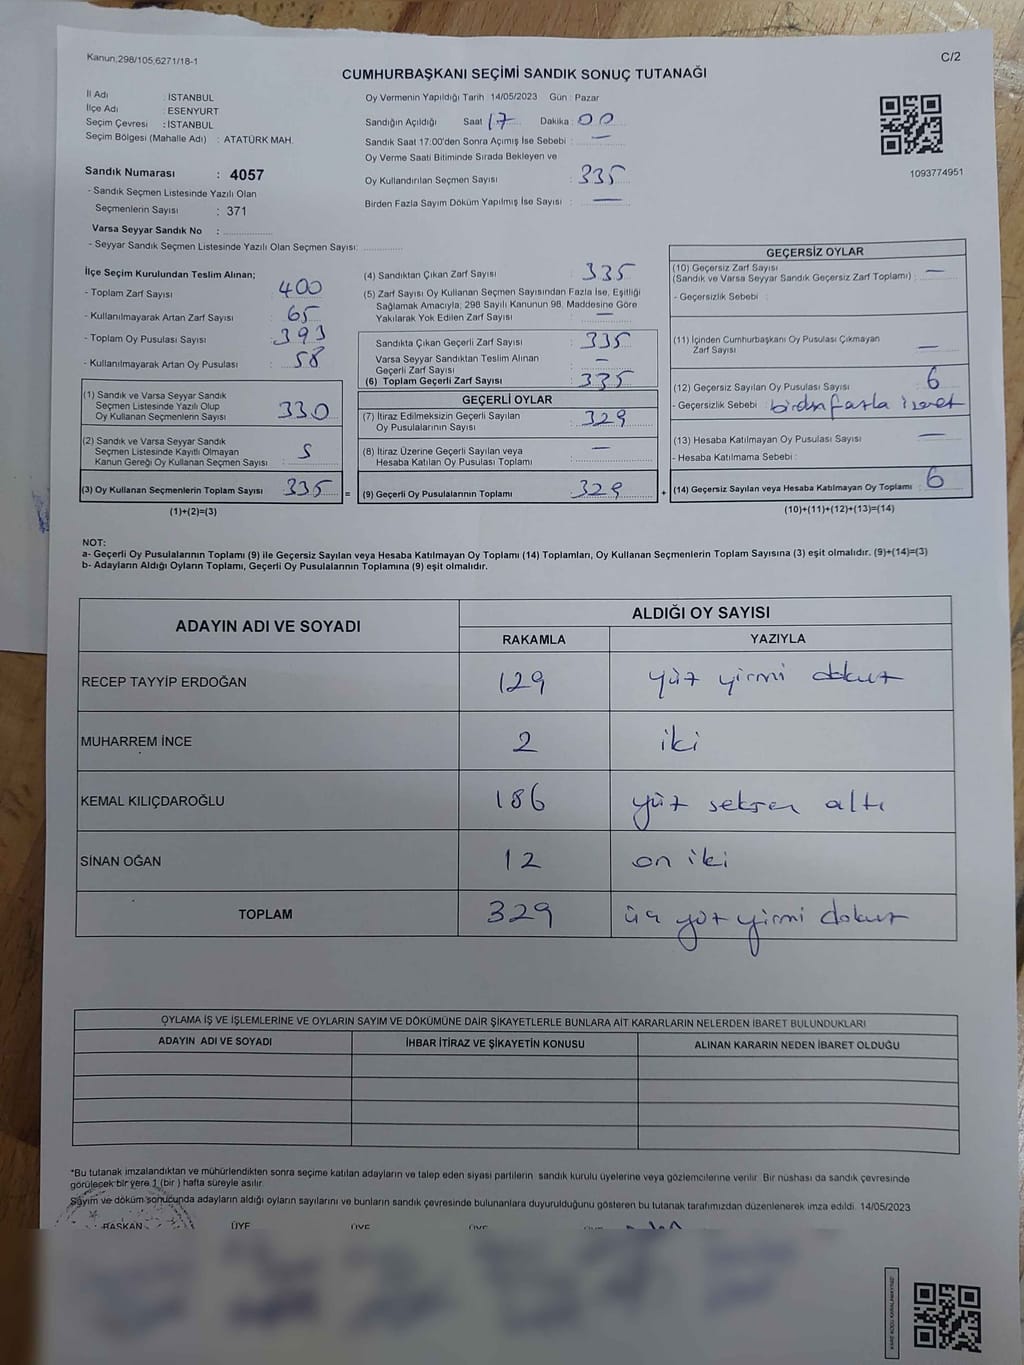 Kanun,298/105,6271/18-1
C/2
CUMHURBAŞKANI SEÇİMİ SANDIK SONUÇ TUTANAĞI
İl Adı : İSTANBUL
İlçe Adı : ESENYURT
Seçim Çevresi : İSTANBUL
Seçim Bölgesi (Mahalle Adı) : ATATÜRK MAH.
Oy Vermenin Yapıldığı Tarih : 14/05/2023 Gün : Pazar
Sandığın Açıldığı Saat 17 Dakika : 00
Sandık Saat 17:00'den Sonra Açımış İse Sebebi : —
Oy Verme Saati Bitiminde Sırada Bekleyen ve
Oy Kullandırılan Seçmen Sayısı : 335
Birden Fazla Sayım Döküm Yapılmış İse Sayısı : —
1093774951
Sandık Numarası : 4057
- Sandık Seçmen Listesinde Yazılı Olan
Seçmenlerin Sayısı : 371
Varsa Seyyar Sandık No :
- Seyyar Sandık Seçmen Listesinde Yazılı Olan Seçmen Sayısı:
İlçe Seçim Kurulundan Teslim Alınan;
- Toplam Zarf Sayısı : 400
- Kullanılmayarak Artan Zarf Sayısı : 65
- Toplam Oy Pusulası Sayısı : 393
- Kullanılmayarak Artan Oy Pusulası : 58
(1) Sandık ve Varsa Seyyar Sandık
Seçmen Listesinde Yazılı Olup
Oy Kullanan Seçmenlerin Sayısı : 330
(2) Sandık ve Varsa Seyyar Sandık
Seçmen Listesinde Kayıtlı Olmayan
Kanun Gereği Oy Kullanan Seçmen Sayısı : 5
(3) Oy Kullanan Seçmenlerin Toplam Sayısı : 335 =
(1)+(2)=(3)
(4) Sandıktan Çıkan Zarf Sayısı : 335
(5) Zarf Sayısı Oy Kullanan Seçmen Sayısından Fazla İse, Eşitliği
Sağlamak Amacıyla; 298 Sayılı Kanunun 98. Maddesine Göre
Yakılarak Yok Edilen Zarf Sayısı : —
Sandıkta Çıkan Geçerli Zarf Sayısı : 335
Varsa Seyyar Sandıktan Teslim Alınan
Geçerli Zarf Sayısı : —
(6) Toplam Geçerli Zarf Sayısı : 335
GEÇERLİ OYLAR
(7) İtiraz Edilmeksizin Geçerli Sayılan
Oy Pusulalarının Sayısı : 329
(8) İtiraz Üzerine Geçerli Sayılan veya
Hesaba Katılan Oy Pusulası Toplamı : —
(9) Geçerli Oy Pusulalarının Toplamı : 329 +
GEÇERSİZ OYLAR
(10) Geçersiz Zarf Sayısı
(Sandık ve Varsa Seyyar Sandık Geçersiz Zarf Toplamı) : —
- Geçersizlik Sebebi :
(11) İçinden Cumhurbaşkanı Oy Pusulası Çıkmayan
Zarf Sayısı : —
(12) Geçersiz Sayılan Oy Pusulası Sayısı : 6
- Geçersizlik Sebebi : birden fazla işaret
(13) Hesaba Katılmayan Oy Pusulası Sayısı : —
- Hesaba Katılmama Sebebi :
(14) Geçersiz Sayılan veya Hesaba Katılmayan Oy Toplamı : 6
(10)+(11)+(12)+(13)=(14)
NOT:
a- Geçerli Oy Pusulalarının Toplamı (9) ile Geçersiz Sayılan veya Hesaba Katılmayan Oy Toplamı (14) Toplamları, Oy Kullanan Seçmenlerin Toplam Sayısına (3) eşit olmalıdır. (9)+(14)=(3)
b- Adayların Aldığı Oyların Toplamı, Geçerli Oy Pusulalarının Toplamına (9) eşit olmalıdır.
ADAYIN ADI VE SOYADI
ALDIĞI OY SAYISI
RAKAMLA YAZIYLA
RECEP TAYYİP ERDOĞAN 129 yüz yirmi dokuz
MUHARREM İNCE 2 iki
KEMAL KILIÇDAROĞLU 186 yüz seksen altı
SİNAN OĞAN 12 on iki
TOPLAM 329 üç yüz yirmi dokuz
OYLAMA İŞ VE İŞLEMLERİNE VE OYLARIN SAYIM VE DÖKÜMÜNE DAİR ŞİKAYETLERLE BUNLARA AİT KARARLARIN NELERDEN İBARET BULUNDUKLARI
ADAYIN ADI VE SOYADI İHBAR İTİRAZ VE ŞİKAYETİN KONUSU ALINAN KARARIN NEDEN İBARET OLDUĞU
*Bu tutanak imzalandıktan ve mühürlendikten sonra seçime katılan adayların ve talep eden siyasi partilerin sandık kurulu üyelerine veya gözlemcilerine verilir. Bir nüshası da sandık çevresinde
görülecek bir yere 1 (bir ) hafta süreyle asılır.
Sayım ve döküm sonucunda adayların aldığı oyların sayılarını ve bunların sandık çevresinde bulunanlara duyurulduğunu gösteren bu tutanak tarafımızdan düzenlenerek imza edildi. 14/05/2023
BAŞKAN ÜYE ÜYE ÜYE